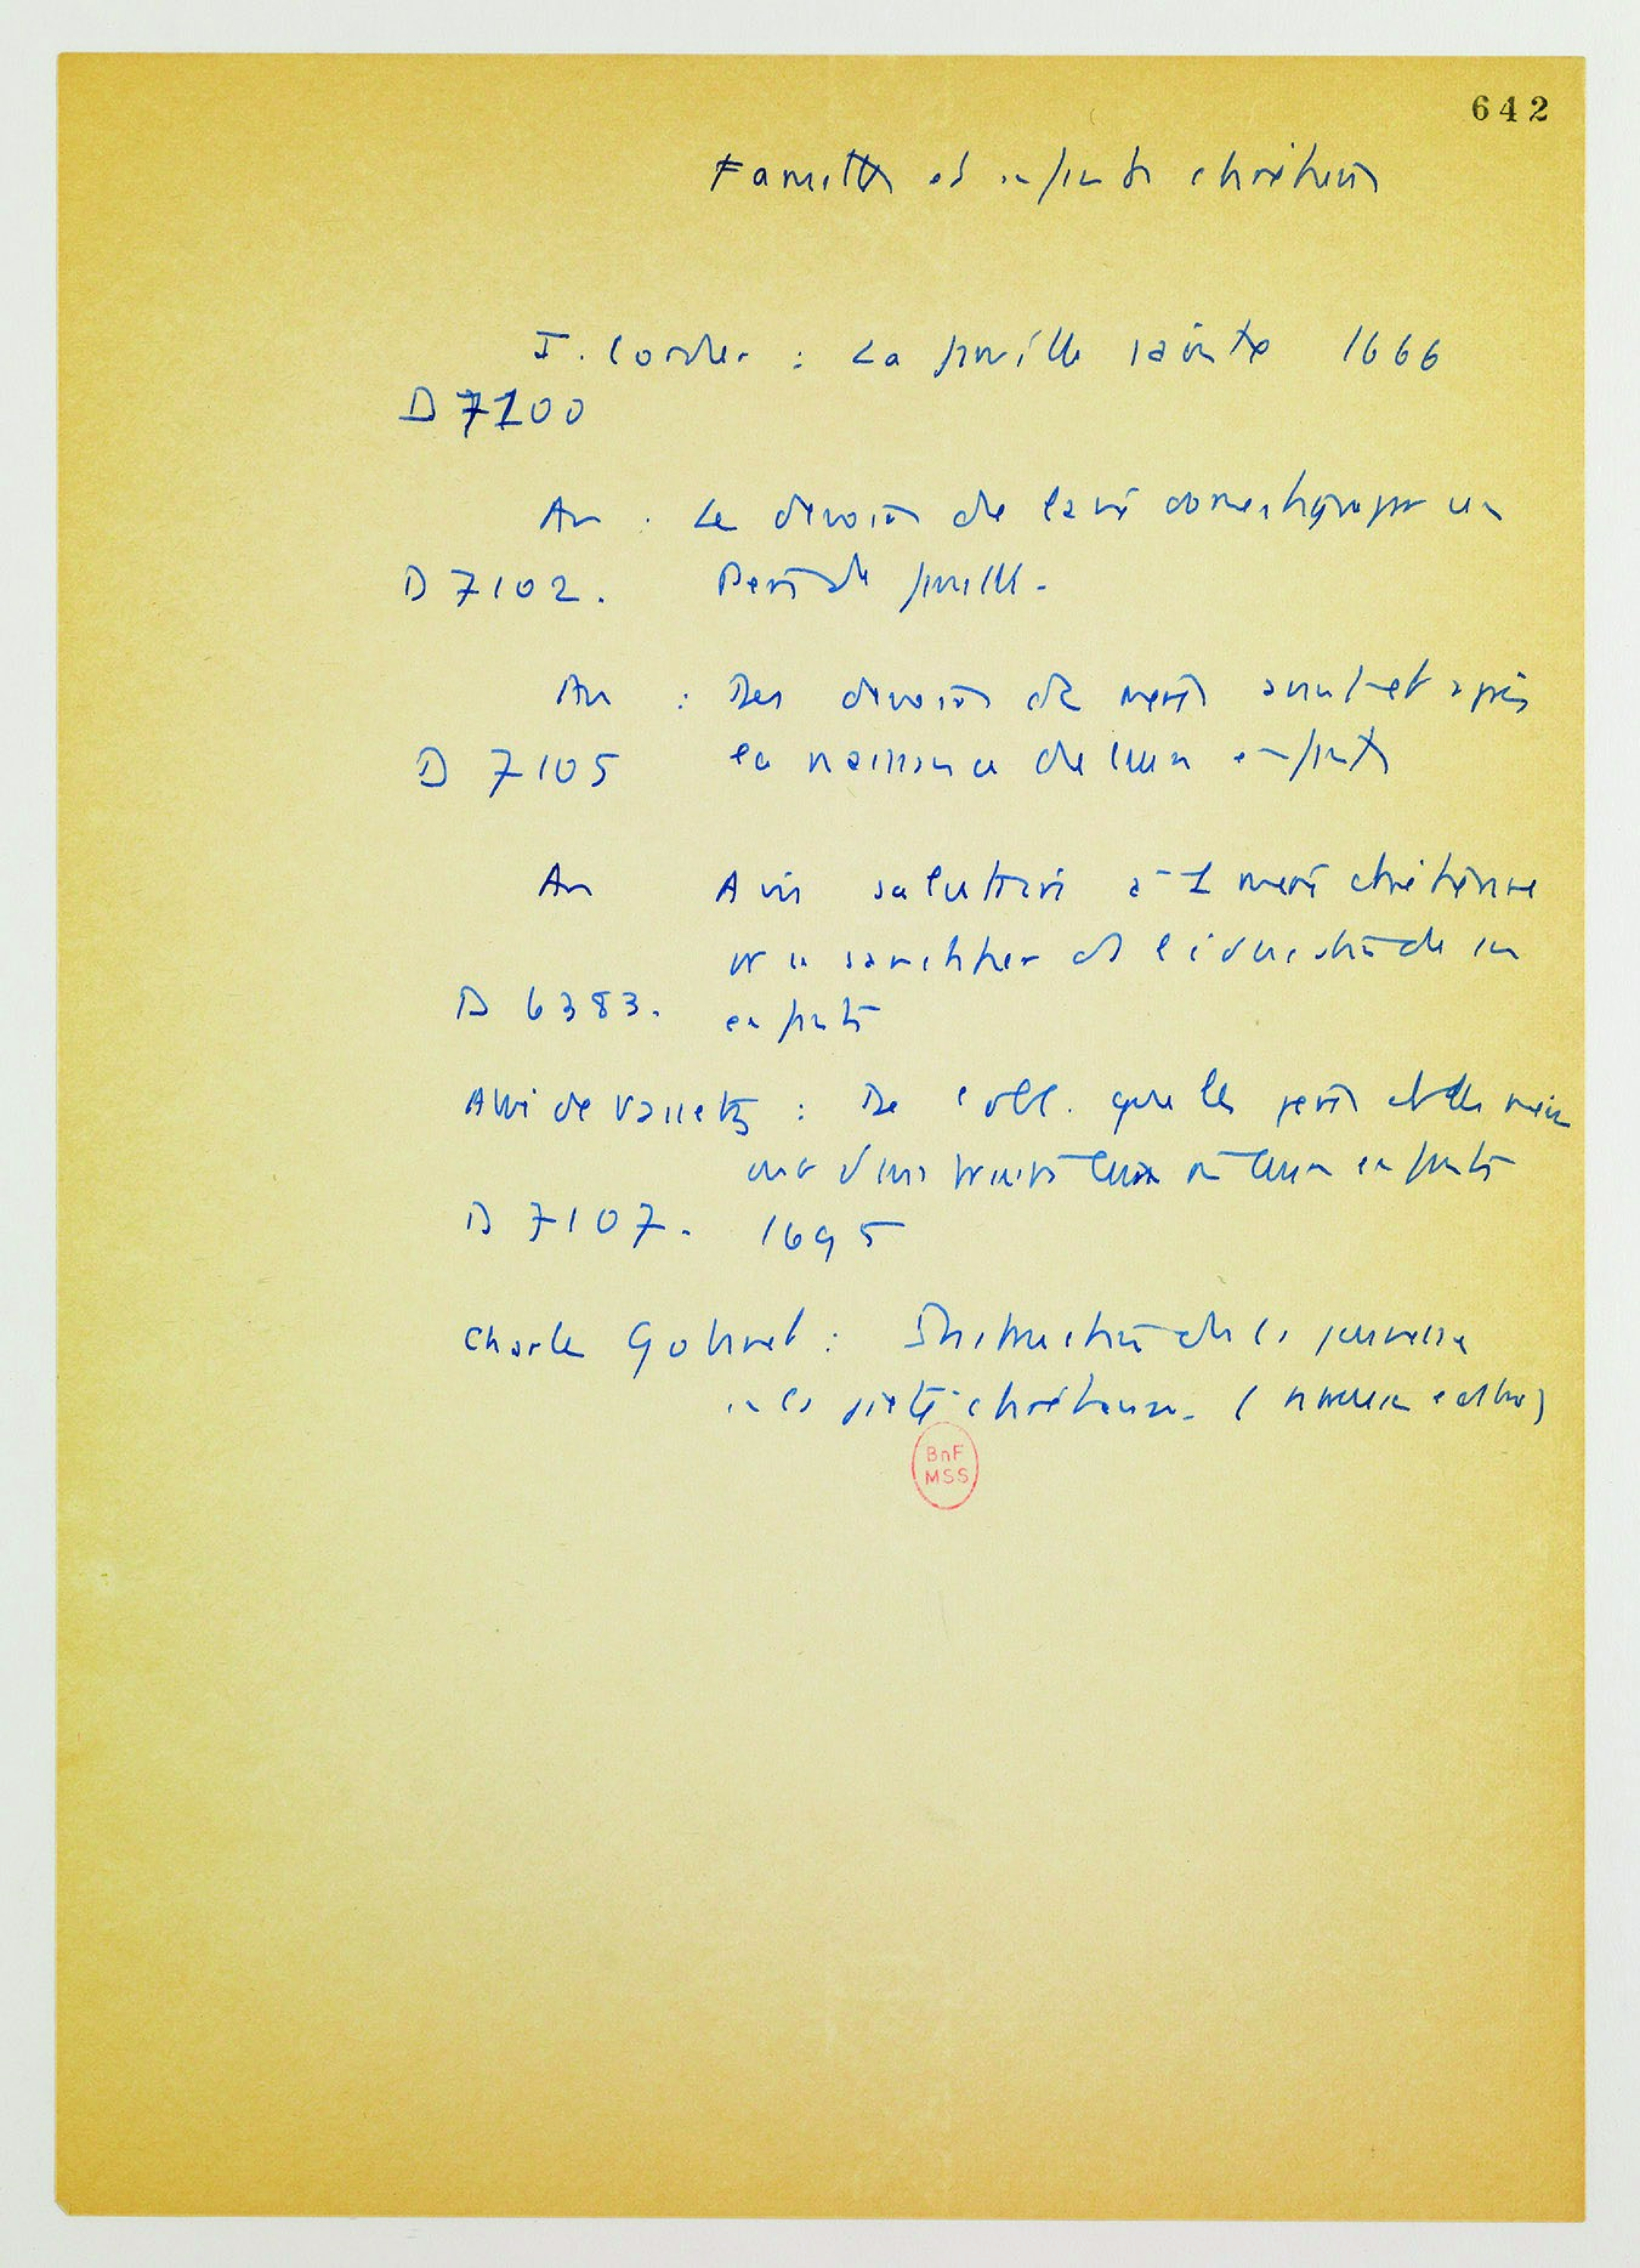 642
Familles et enfants chrétiens
J. Cordier : La famille sainte 1666
D 7100
An : Le devoir de la vie domestique par un
D 7102. Père de famille.
An : Des devoirs des mères avant et après
D 7105 la naissance de leurs enfants
An Avis salutaires à 1 mère chrétienne
pr se sanctifier ds l'éducation de ses
D 6383. enfants
de Varet : De l'obl. que les pères et les mères
ont d'instruire eux m leurs enfants
D 7107. 1695
Charles Gobinet : Instruction de la jeunesse
en la piété chrétienne. (
BnF
MSS